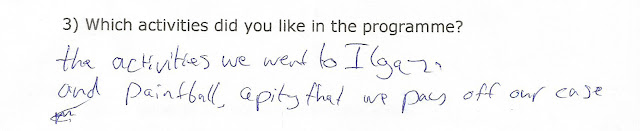 3) Which activities did you like in the programme?
the activities we went to Ilgaz,
and Paintball, apity that we pay off our case